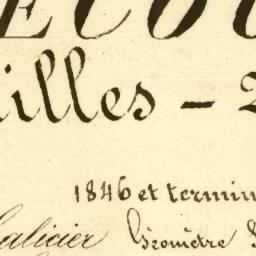 illes - 2
1846 et termin
alicier Géomètre